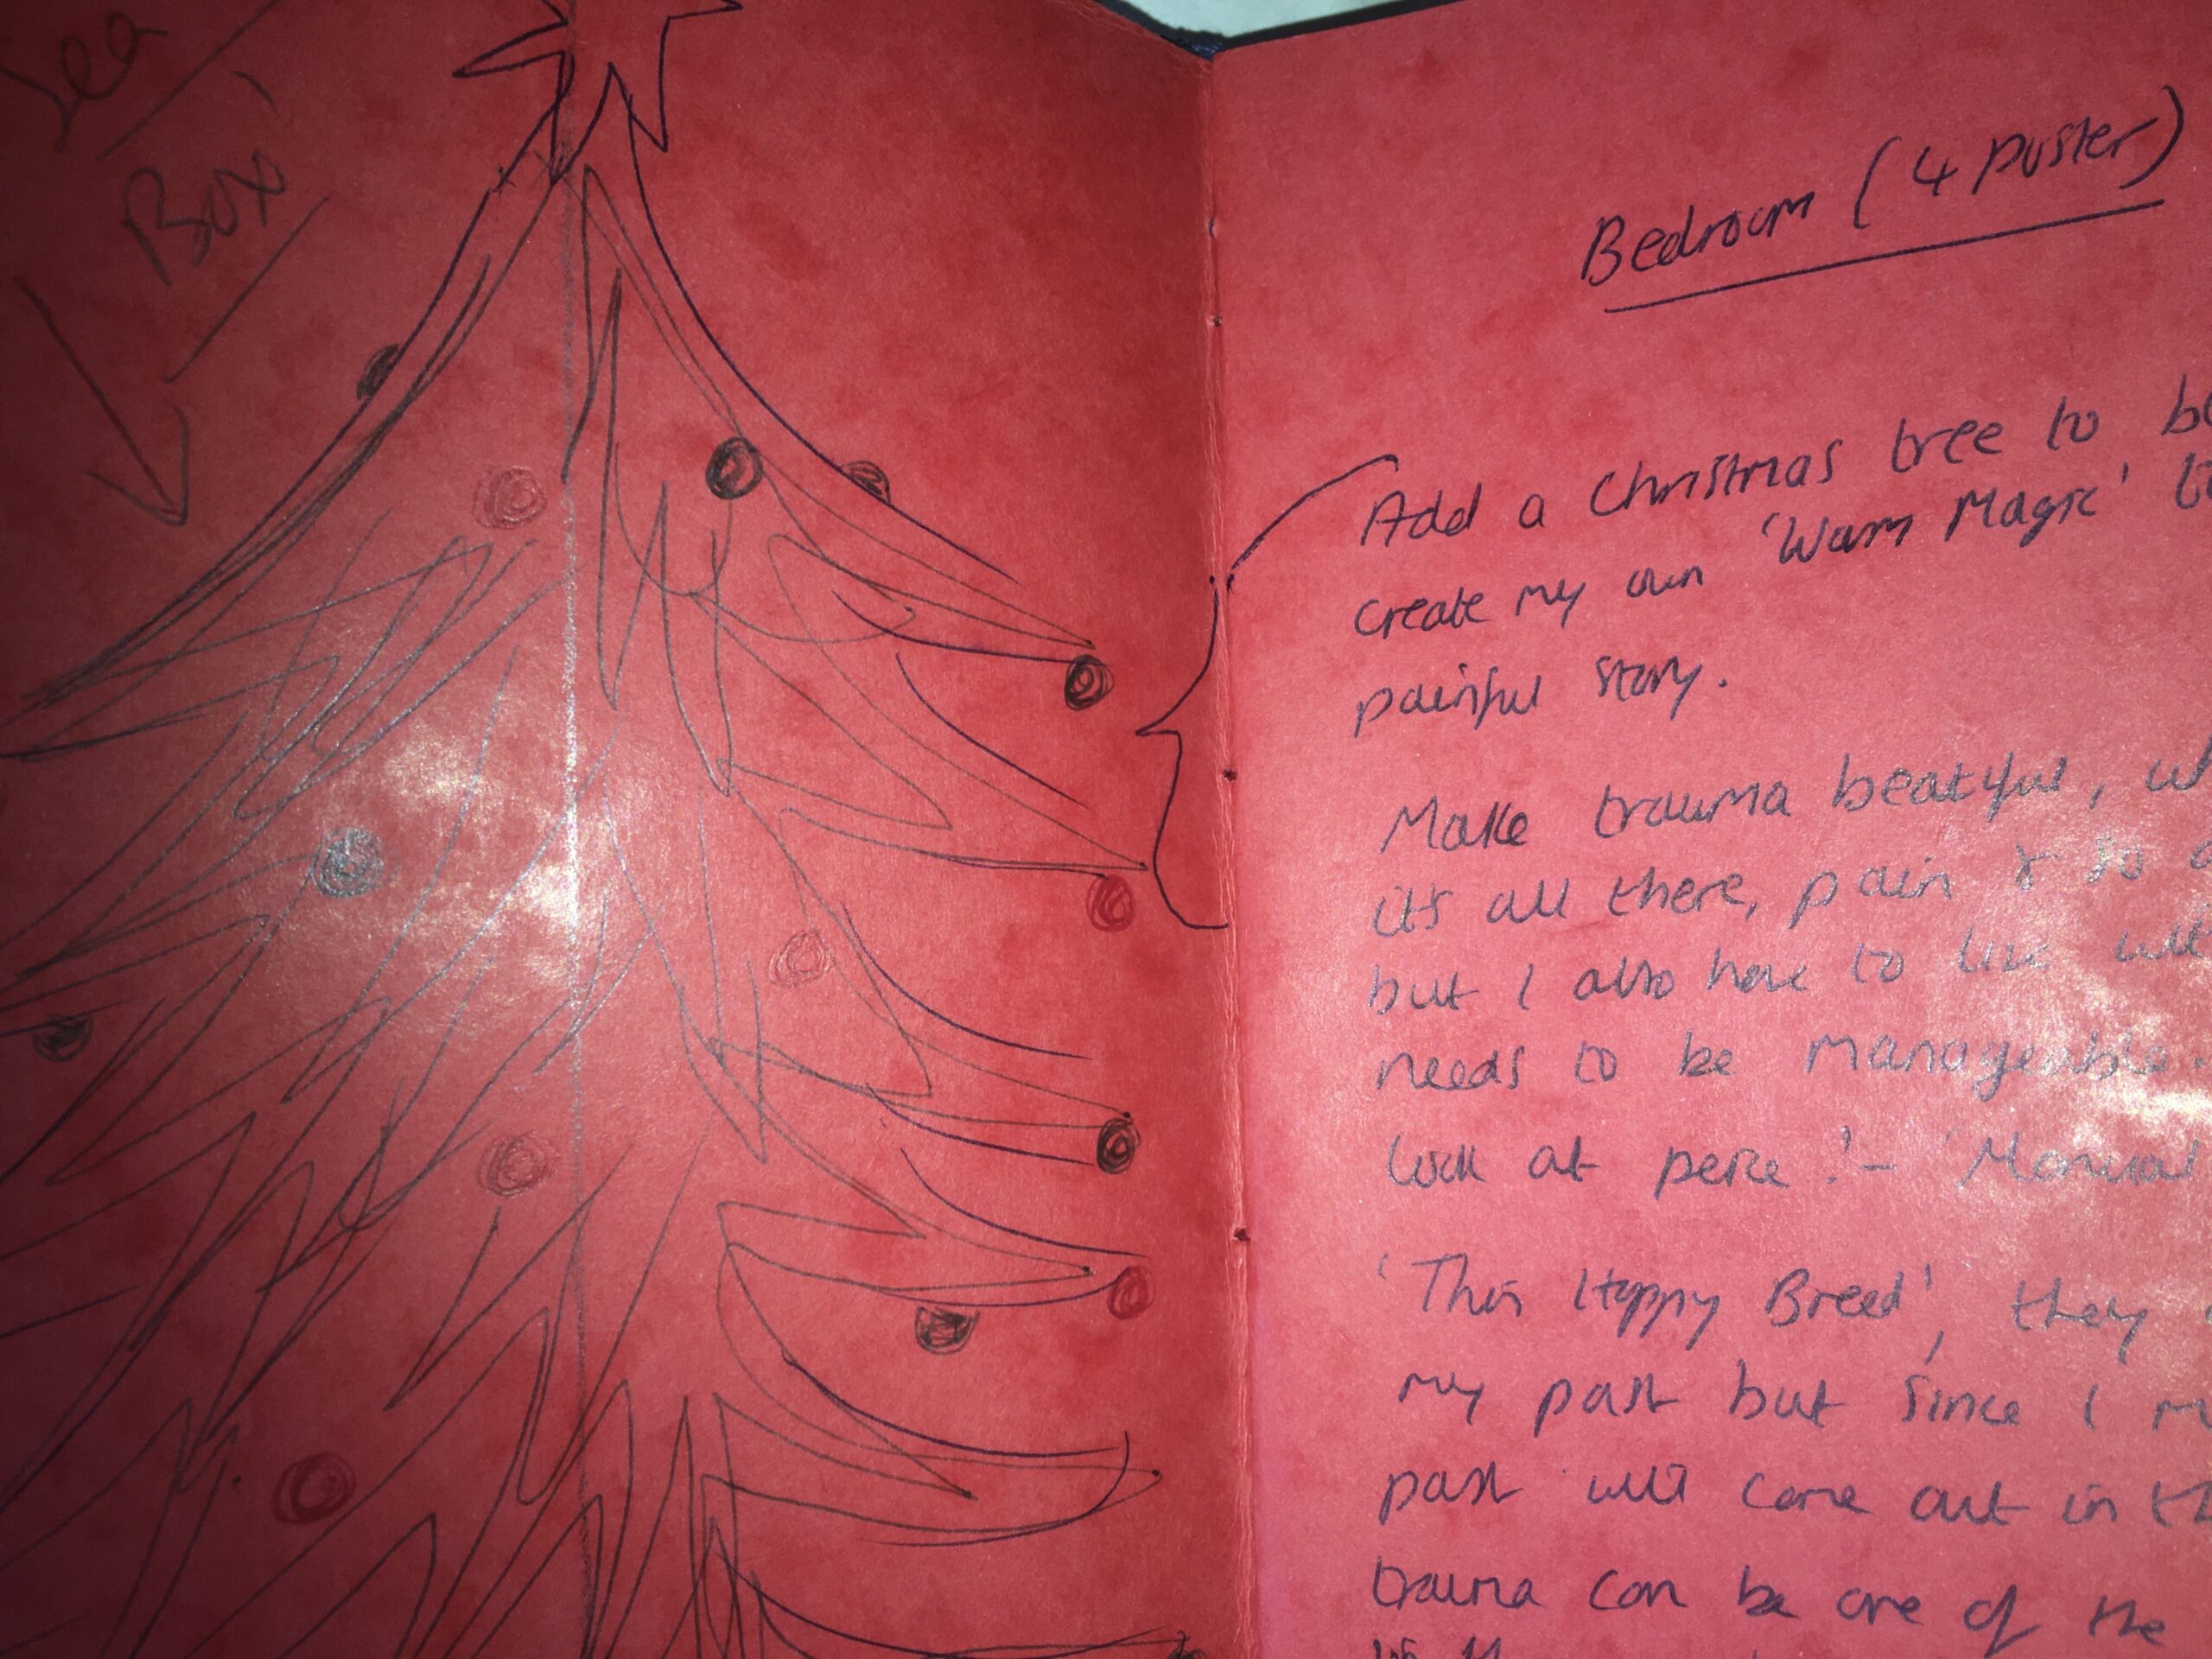 Sea
Box!
Bedroom (4 poster)
Add a Christmas tree to
create my own 'Warm Magic'
painful story.
Make trauma beatiful,
it's all there, pain & so
but I also have to live
needs to be manageable.
look at perce!-
'This Happy Breed', they
my past but since I
past will come out in
trauma can be one of the